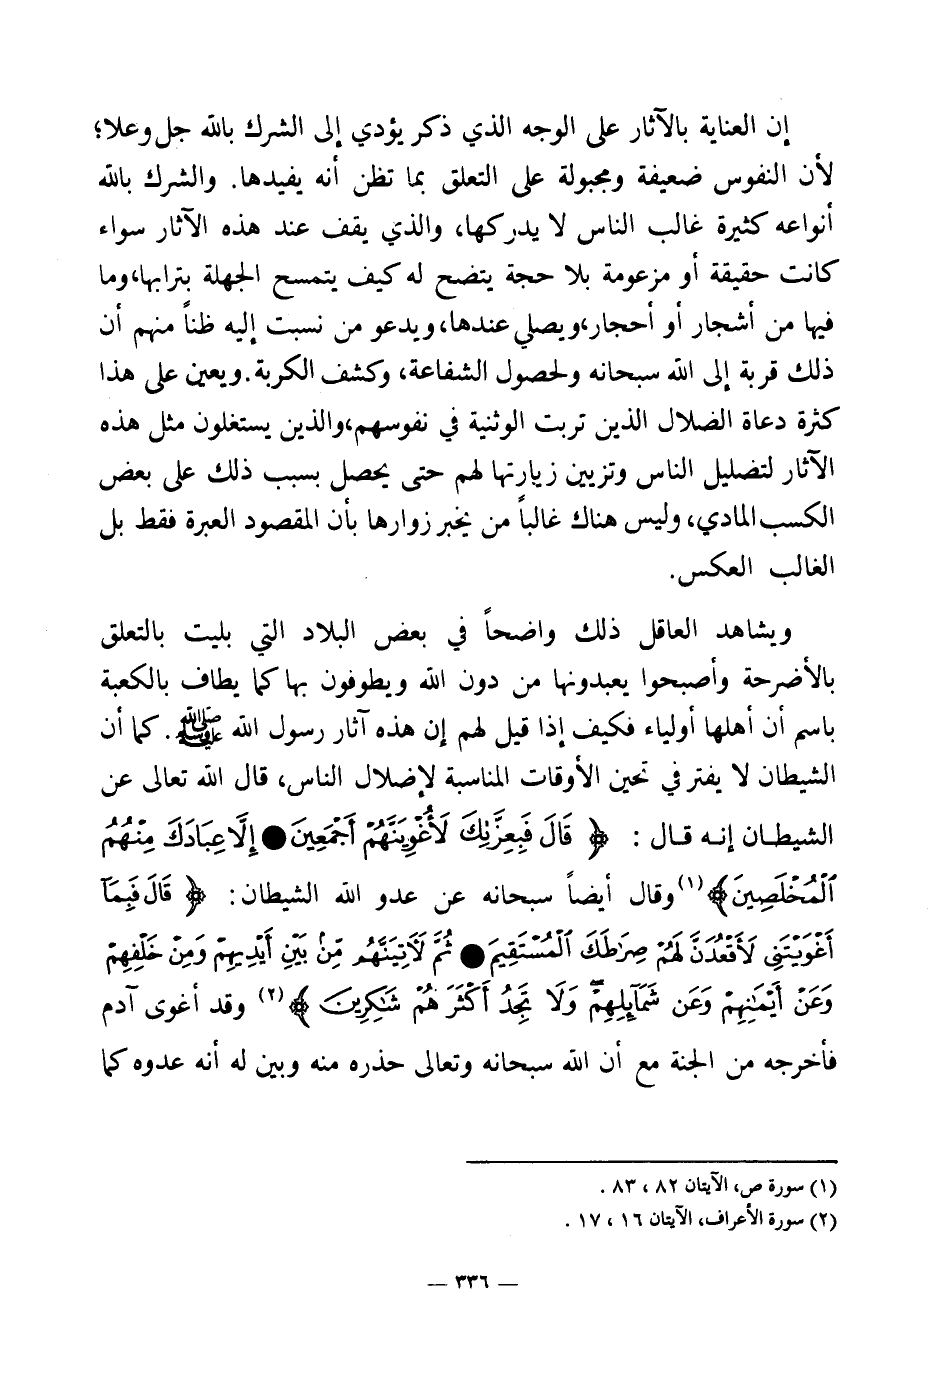 إن العناية بالآثار على الوجه الذي ذكر يؤدي إلى الشرك بالله جل وعلا؛
لأن النفوس ضعيفة ومجبولة على التعلق بما تظن أنه يفيدها. والشرك بالله
أنواعه كثيرة غالب الناس لا يدركها، والذي يقف عند هذه الآثار سواء
كانت حقيقة أو مزعومة بلا حجة يتضح له كيف يتمسح الجهلة بترابها، وما
فيها من أشجار أو أحجار، ويصلي عندها، ويدعو من نسبت إليه ظناً منهم أن
ذلك قربة إلى الله سبحانه ولحصول الشفاعة، وكشف الكربة. ويعين على هذا
كثرة دعاة الضلال الذين تربت الوثنية في نفوسهم، والذين يستغلون مثل هذه
الآثار لتضليل الناس وتزيين زيارتها لهم حتى يحصل بسبب ذلك على بعض
الكسب المادي، وليس هناك غالباً من يخبر زوارها بأن المقصود العبرة فقط بل
الغالب العكس.
ويشاهد العاقل ذلك واضحاً في بعض البلاد التي بليت بالتعلق
بالأضرحة وأصبحوا يعبدونها من دون الله ويطوفون بها كما يطاف بالكعبة
باسم أن أهلها أولياء فكيف إذا قيل لهم إن هذه آثار رسول الله ﷺ. كما أن
الشيطان لا يفتر في تحين الأوقات المناسبة لإضلال الناس، قال الله تعالى عن
الشيطان إنه قال : ﴿ قَالَ فَبِعِزَّتِكَ لَأُغْوِيَنَّهُمْ أَجْمَعِينَ ● إِلَّا عِبَادَكَ مِنْهُمُ
ٱلْمُخْلَصِينَ ﴾(١) وقال أيضاً سبحانه عن عدو الله الشيطان: ﴿ قَالَ فَبِمَآ
أَغْوَيْتَنِى لَأَقْعُدَنَّ لَهُمْ صِرَٰطَكَ ٱلْمُسْتَقِيمَ ● ثُمَّ لَآتِيَنَّهُم مِّنۢ بَيْنِ أَيْدِيهِمْ وَمِنْ خَلْفِهِمْ
وَعَنْ أَيْمَٰنِهِمْ وَعَن شَمَآئِلِهِمْ وَلَا تَجِدُ أَكْثَرَهُمْ شَٰكِرِينَ ﴾(٢) وقد أغوى آدم
فأخرجه من الجنة مع أن الله سبحانه وتعالى حذره منه وبين له أنه عدوه كما
(١) سورة ص، الآيتان ٨٢ ، ٨٣ .
(٢) سورة الأعراف، الآيتان ١٦ ، ١٧ .
— ٣٣٦ —